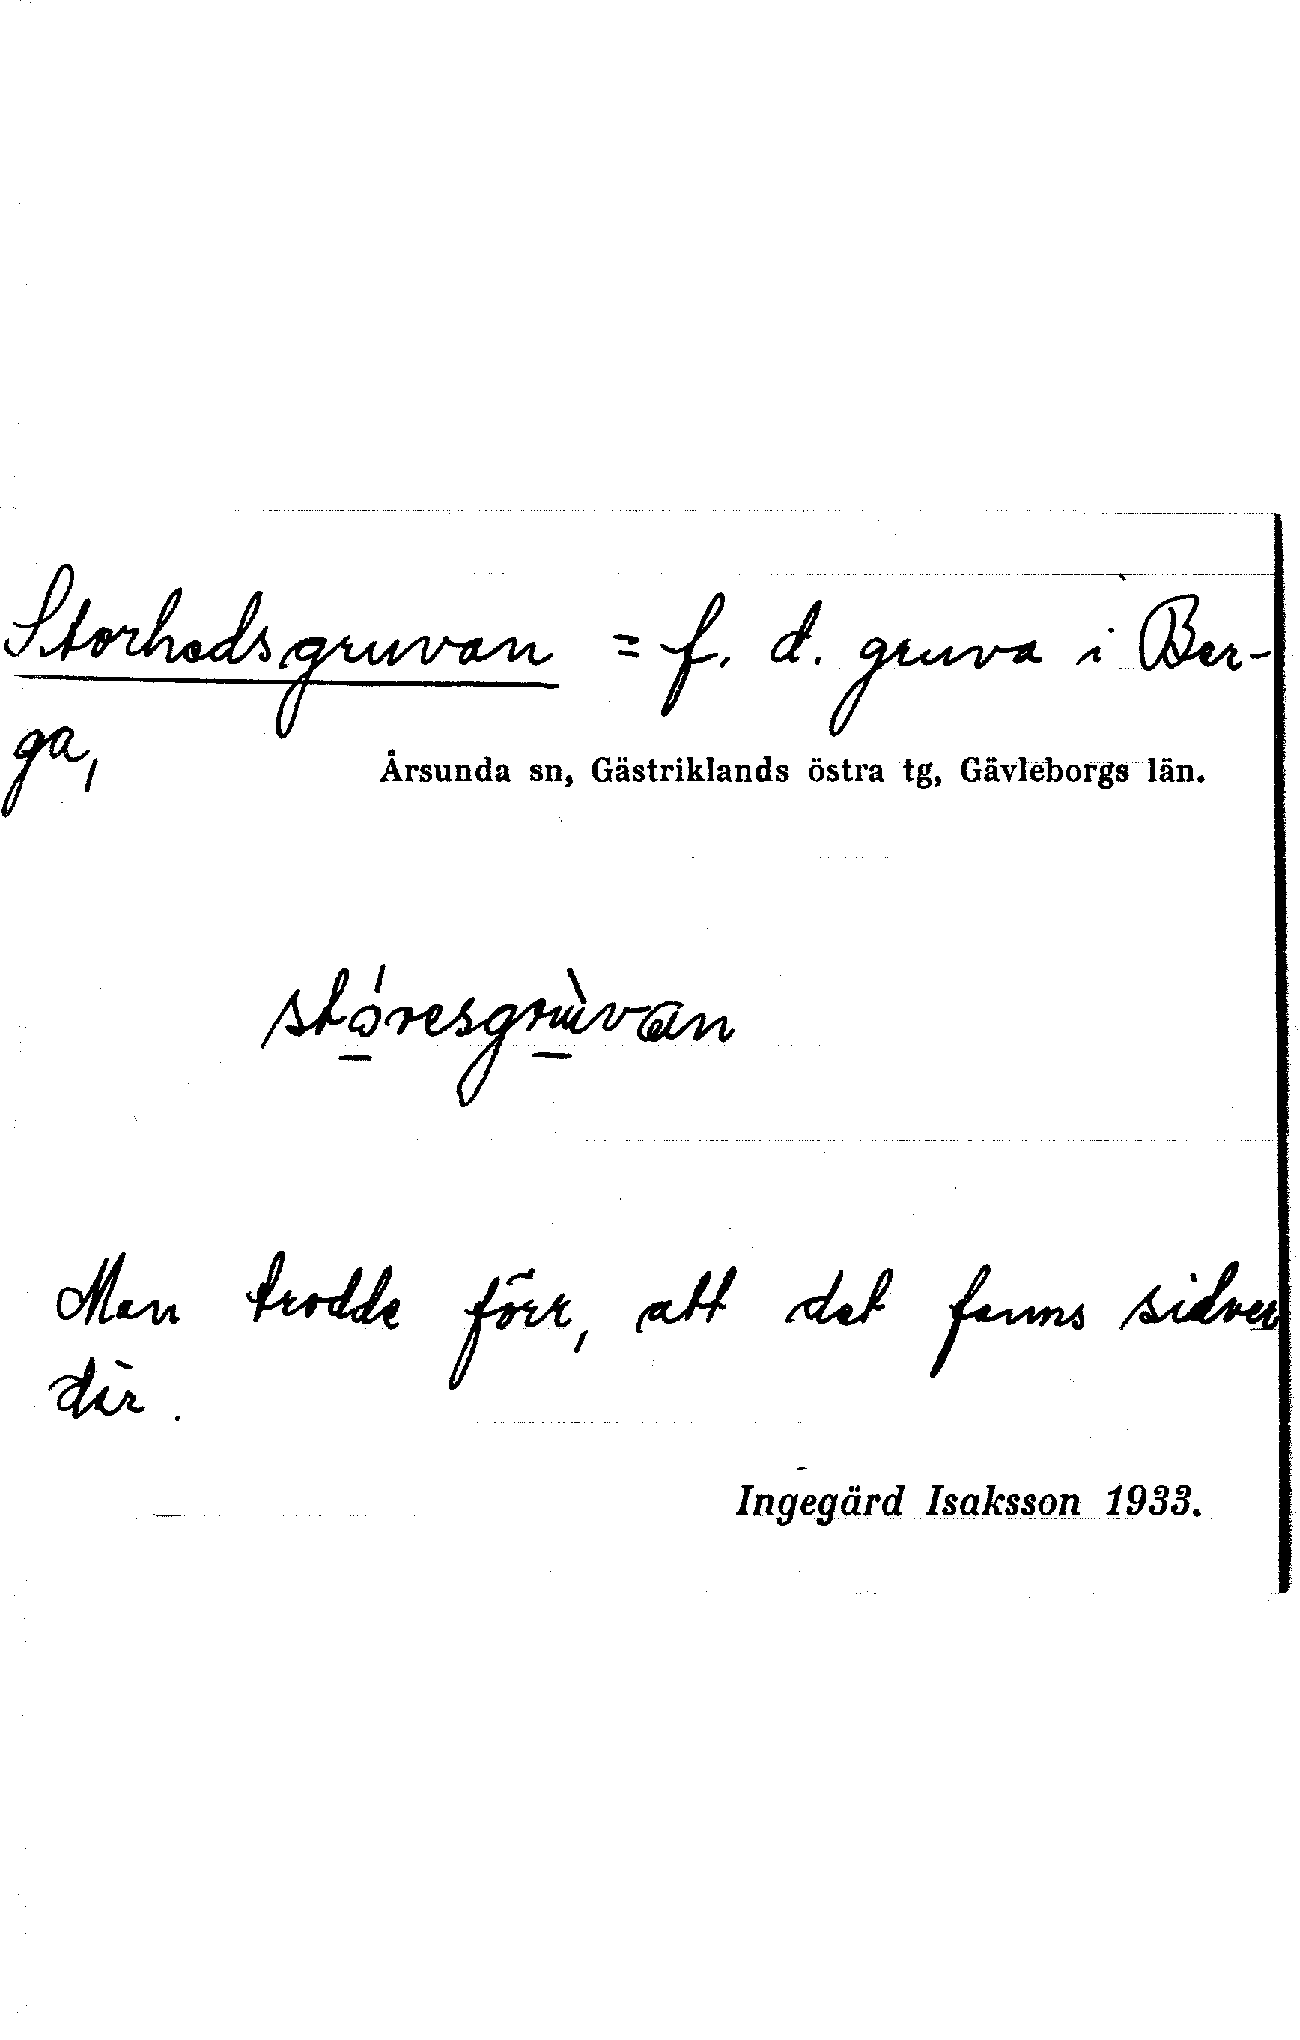 Storhedsgruvan = f. d. gruva i Ber-
ga,
Årsunda sn, Gästriklands östra tg, Gävleborgs län.
stó̠resgrù̠van
Man trodde förr, att det fanns silver
där.
Ingegärd Isaksson 1933.